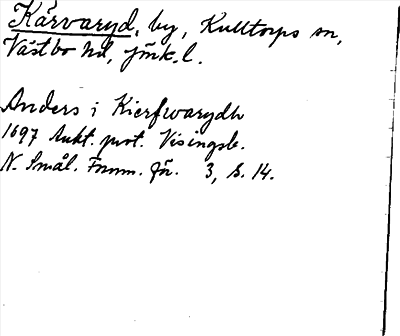 Kärvaryd, by, Kulltorps sn,
Västbo hd, Jönk. l.
Anders i Kierfwarydh
1697 Aukt. prot. Visingsb.
N. Smål. Fornm. för. 3, s. 14.